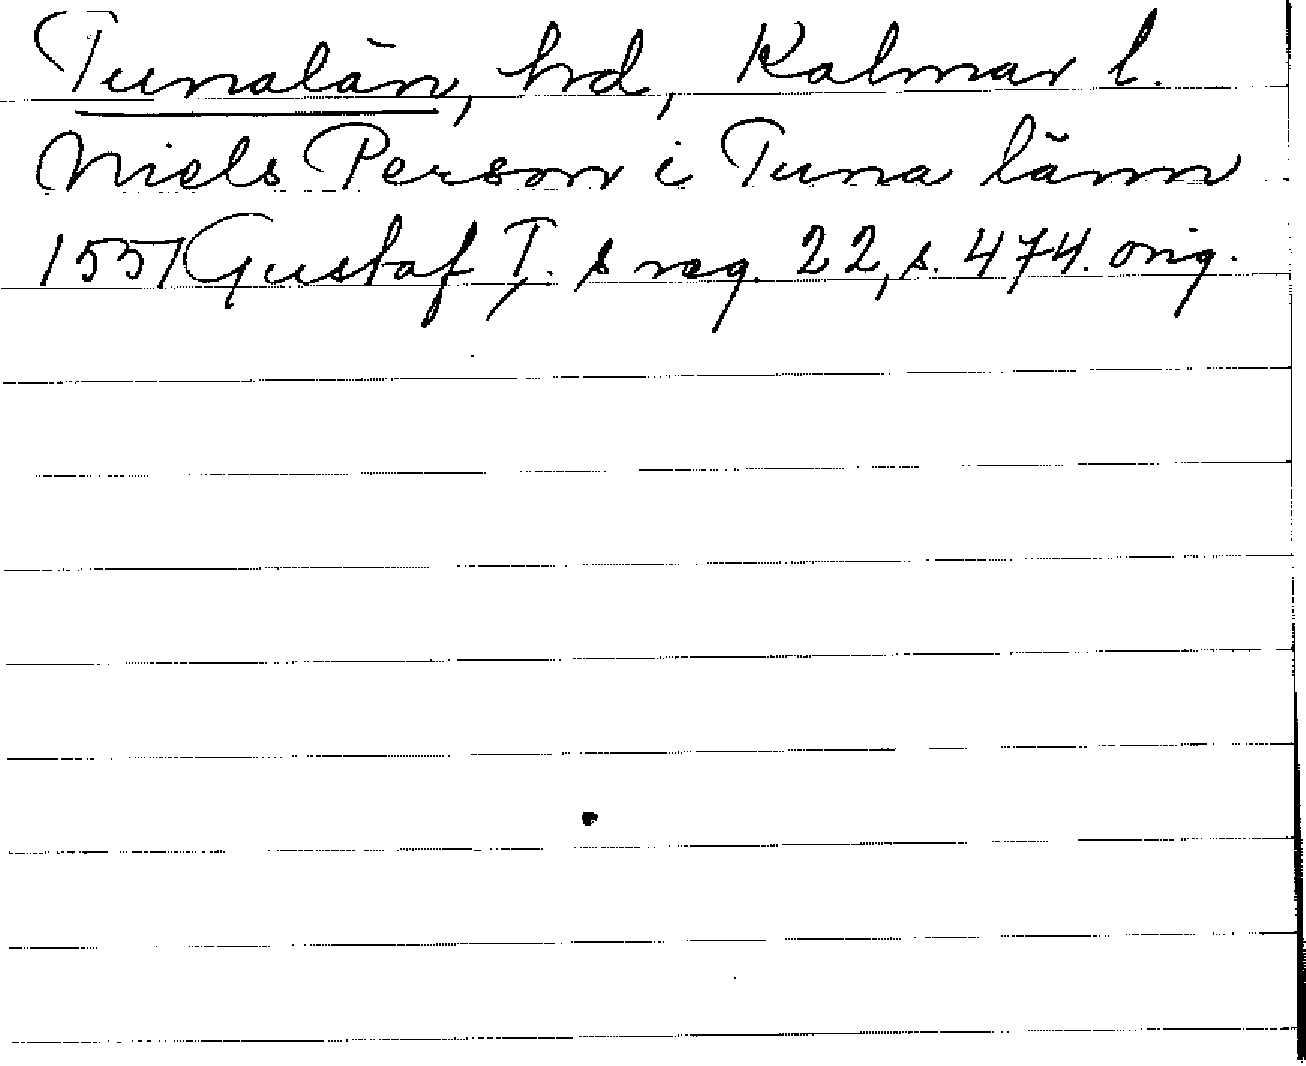 Tunalän, hd, Kalmar l.
Niels Person i Tuna länn
1551 Gustaf I. s reg. 22, s. 474. orig.